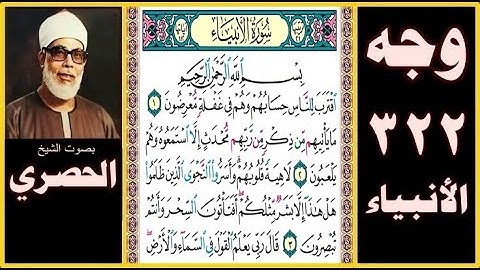 وجه
٣٢٢
الأنبياء
سُورَةُ الأَنبِيَاءِ
بِسْمِ اللَّهِ الرَّحْمَٰنِ الرَّحِيمِ
اقْتَرَبَ لِلنَّاسِ حِسَابُهُمْ وَهُمْ فِي غَفْلَةٍ مُّعْرِضُونَ ١
مَا يَأْتِيهِم مِّن ذِكْرٍ مِّن رَّبِّهِم مُّحْدَثٍ إِلَّا اسْتَمَعُوهُ وَهُمْ
يَلْعَبُونَ ٢ لَاهِيَةً قُلُوبُهُمْ وَأَسَرُّوا النَّجْوَى الَّذِينَ ظَلَمُوا
هَلْ هَٰذَا إِلَّا بَشَرٌ مِّثْلُكُمْ أَفَتَأْتُونَ السِّحْرَ وَأَنتُمْ
تُبْصِرُونَ ٣ قَالَ رَبِّي يَعْلَمُ الْقَوْلَ فِي السَّمَاءِ وَالْأَرْضِ
بصوت الشيخ
الحصري